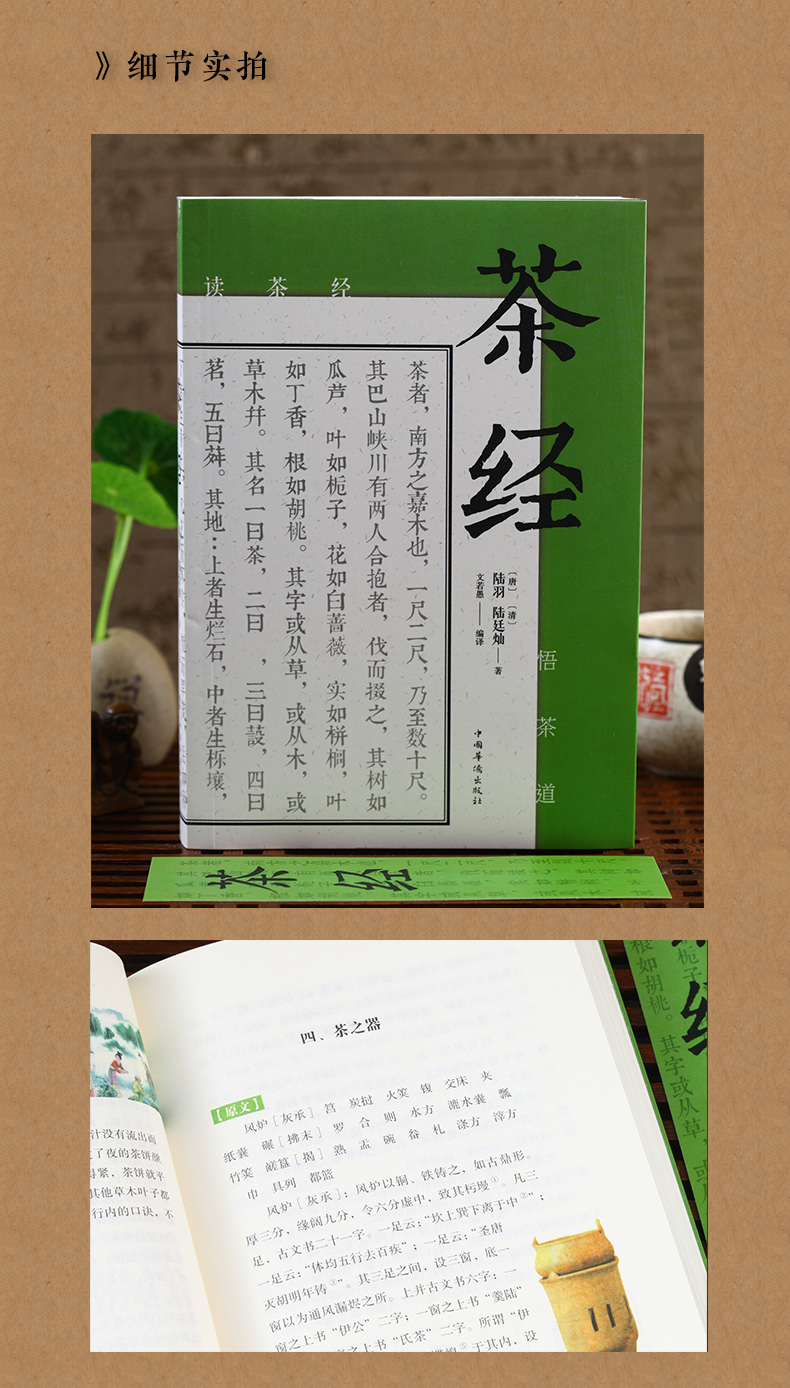 》细节实拍
读茶经
茶经
[唐] 陆羽 [清] 陆廷灿 — 著
文若愚 —— 编译
茶者，南方之嘉木也，一尺二尺，乃至数十尺。
其巴山峡川有两人合抱者，伐而掇之，其树如
瓜芦，叶如栀子，花如白蔷薇，实如栟榈，叶
如丁香，根如胡桃。其字或从草，或从木，或
草木幷。其名一曰茶，二曰 ，三曰蔎，四曰
茗，五曰荈。其地：上者生烂石，中者生栎壤，
悟茶道
中国华侨出版社
茶经
汁没有流出面
了夜的茶饼颜
得紧，茶饼就平
其他草木叶子都
行内的口诀，不
四、茶之器
[原文]
风炉［灰承］ 筥 炭挝 火筴 鍑 交床 夹
纸囊 碾［拂末］ 罗 合 则 水方 漉水囊 瓢
竹筴 鹾簋［揭］ 熟 盂 碗 畚 札 涤方 滓方
巾 具列 都篮
风炉［灰承］：风炉以铜、铁铸之，如古鼎形。
厚三分，缘阔九分，令六分虚中，致其杇墁①。凡三
足，古文书二十一字。一足云：“坎上巽下离于中②”；
一足云：“体均五行去百疾”；一足云：“圣唐
灭胡明年铸③”。其三足之间，设三窗，底一
窗以为通风漏烬之所。上并古文书六字：一
窗之上书“伊公”二字；一窗之上书“羹陆”
之上书“氏茶”二字。所谓“伊
⑤于其内，设
栀子
根如胡桃。
其字或从草